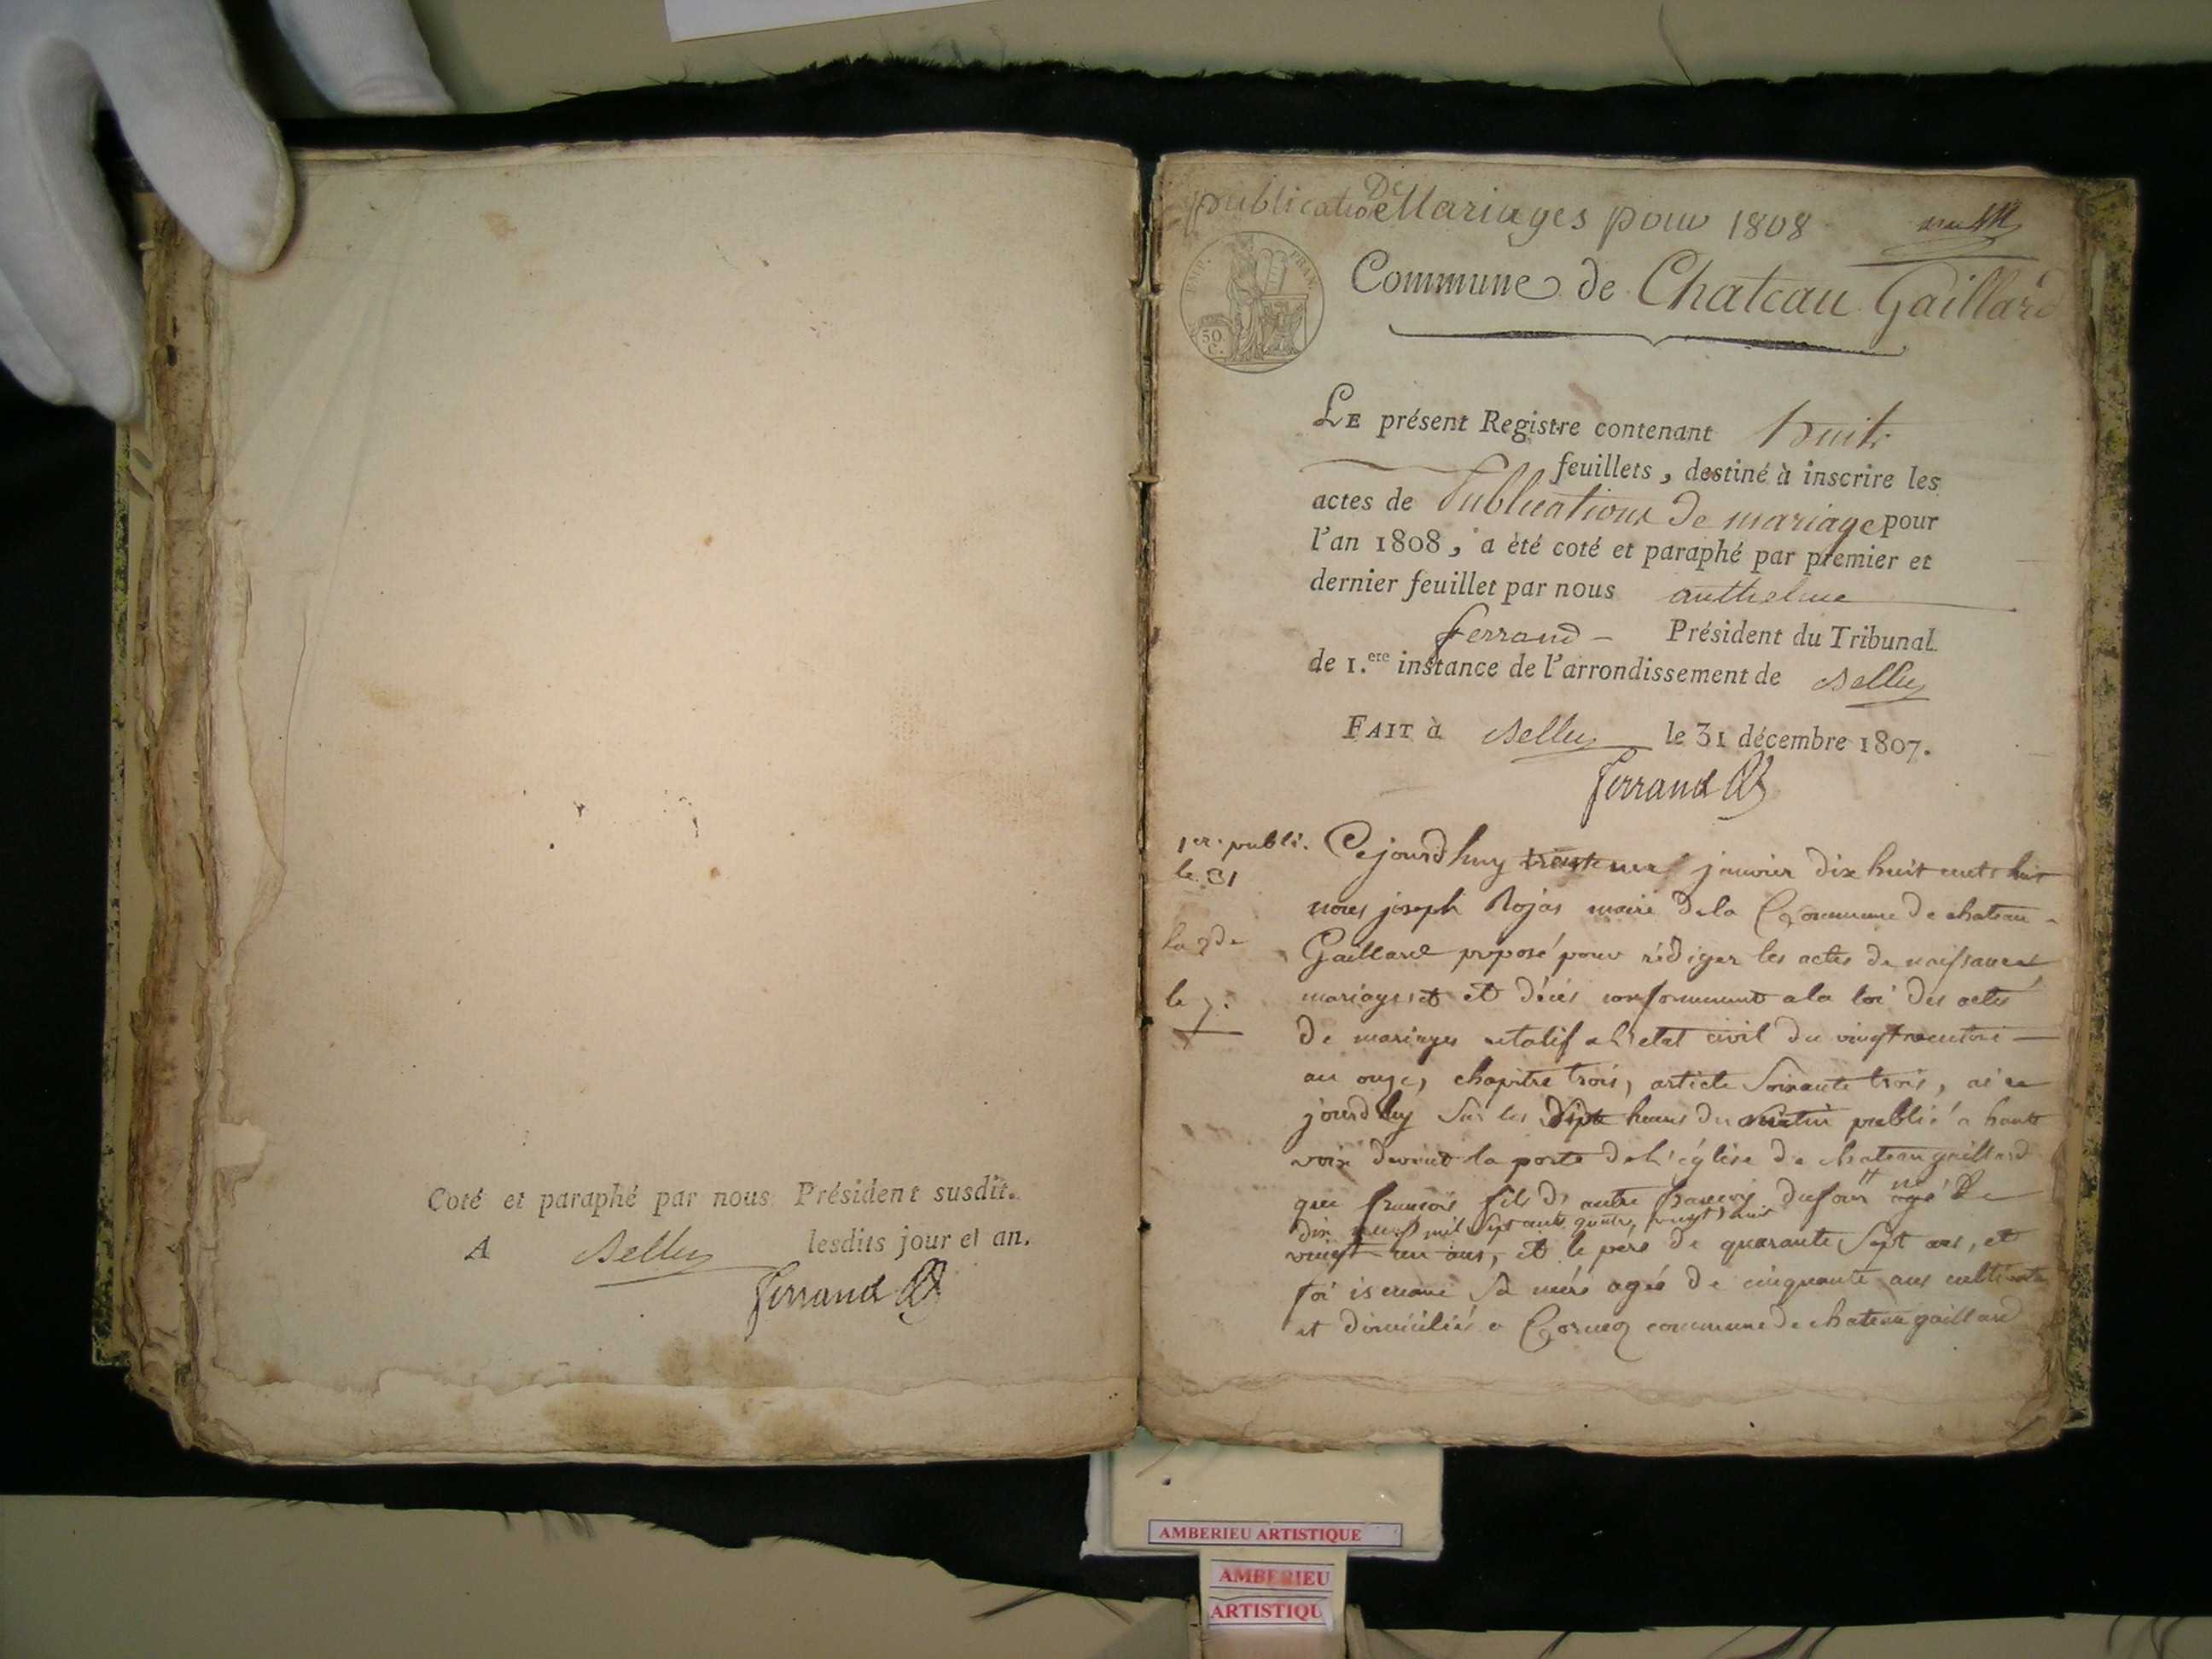 Coté et paraphé par nous Président susdit.
A Belley lesdits jour et an.
Ferrand
publication De Mariages pour 1808
EMP. FRAN.
50 C.
Commune de Chateau Gaillard
LE présent Registre contenant huit
feuillets, destiné à inscrire les
actes de Publications de mariage pour
l'an 1808, a été coté et paraphé par premier et
dernier feuillet par nous anthelme
ferrand - Président du Tribunal
de 1.ere instance de l'arrondissement de Belley
FAIT à Belley le 31 décembre 1807.
Ferrand
1er. publi.
le 31
la 2de
le 7.
Cejourd huy trente un janvier dix huit cents huit
nous joseph Rojas maire dela Commune de chateau-
Gaillard proposé pour rédiger les actes de naissances
mariages et et décés conformement ala loi des actes
de mariages relatif a l'etat civil du vingt ventose
an onze, chapitre trois, article soixante trois, ai ce
jourd huy sur les Sept heures du matin publié a haute
voix devant la porte de l'église de chateaugaillard
que francois fils d'autre francois dufour né le
dix neuf mil sept cents quatre vingt huit
vingt un ans, et le pére de quarante sept ans, et
sa mére agée de cinquante ans cultivateurs
et domiciliés a commune de chateau gaillard
AMBERIEU ARTISTIQUE
AMBERIEU
ARTISTIQU